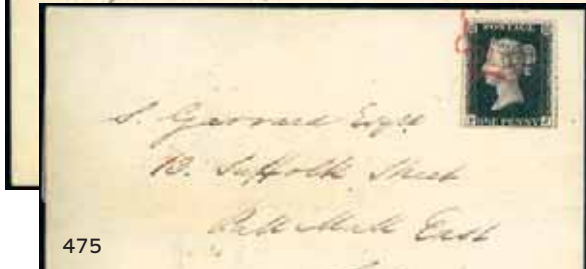 POSTAGE
ONE PENNY
S. Garrard Esqre
13. Suffolk Street
Pall Mall East
475